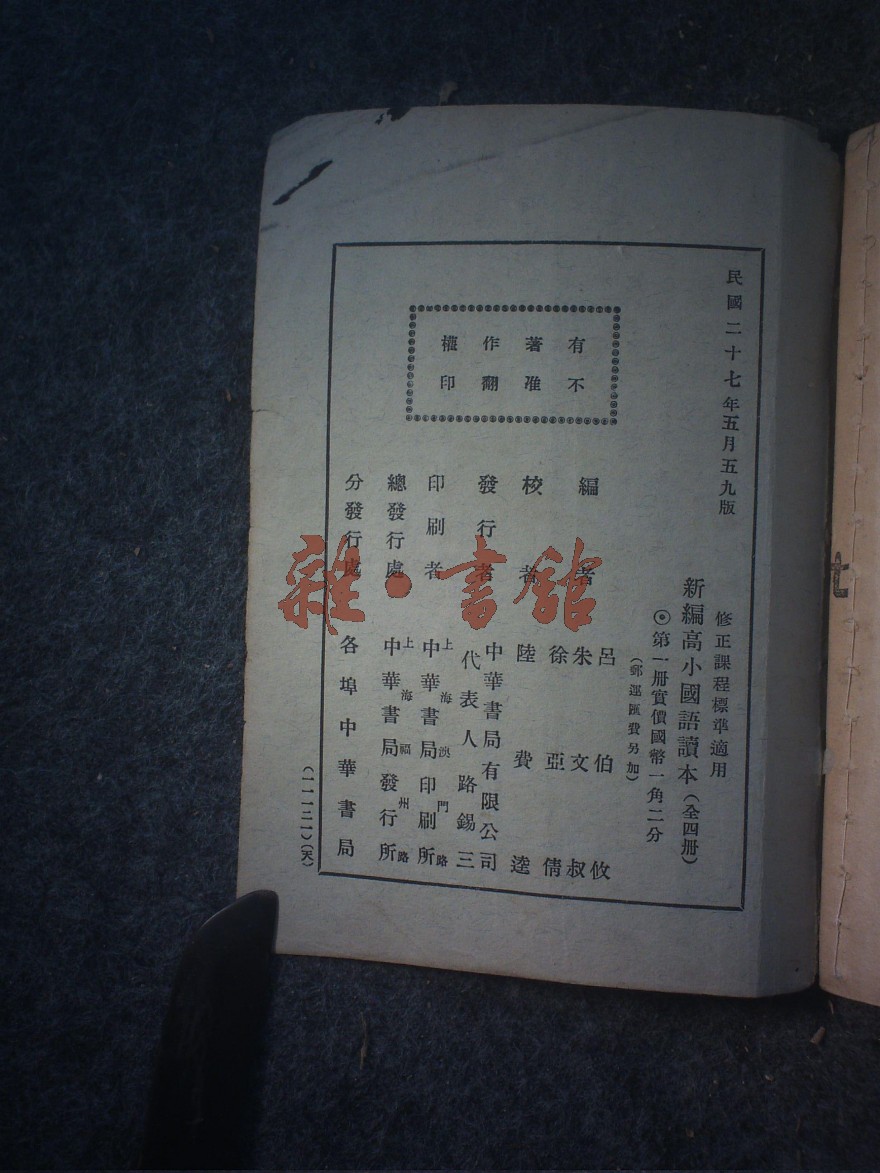 民國二十七年五月五九版
修正課程標準適用
新編高小國語讀本(全四册)
◎第一册實價國幣一角二分
(郵運匯費另加)
有著作權
不准翻印
編者
呂伯攸
朱文叔
徐亞倩
校者
陸費逵
發行者
中華書局有限公司
代表人路錫三
印刷者
上海澳門路
中華書局印刷所
總發行處
上海福州路
中華書局發行所
分發行處
各埠中華書局
(一一一二一)(天)
雜·書館